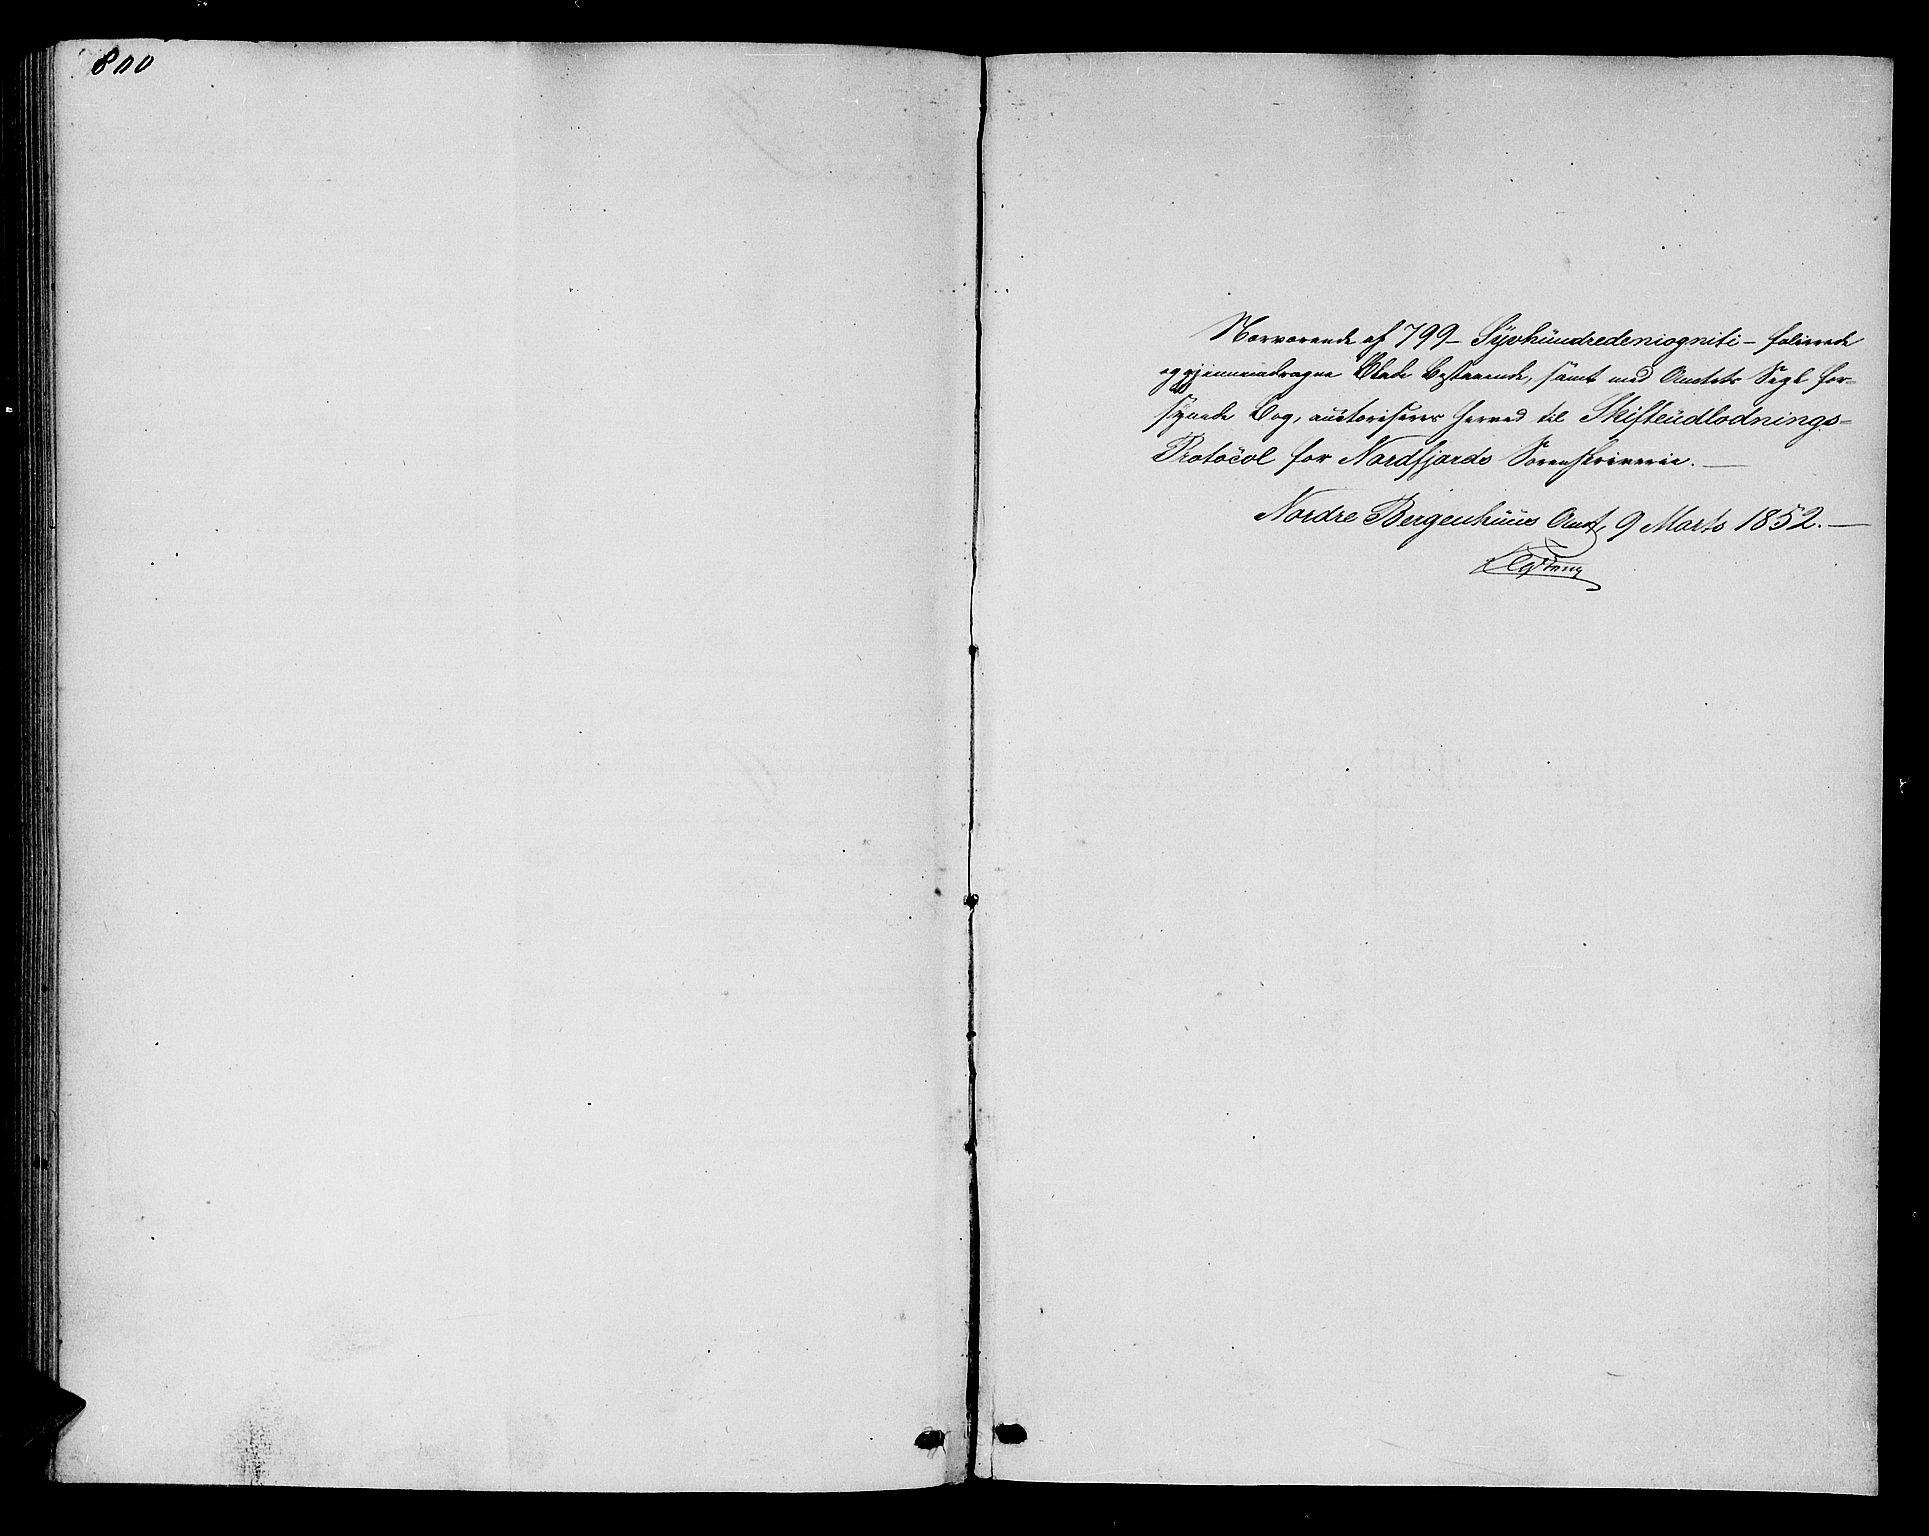 800
Nærværende af 799 - Syvhundredeniogniti - folierede
og gjennemdragne Blade bestaaende, samt med Amtets Segl for-
synede Bog, auctoriseres herved til Skifteudlodnings-
Protocol for Nordfjords Sorenskriverie. —
Nordre Bergenhuus Amt, 9 Marts 1852. —